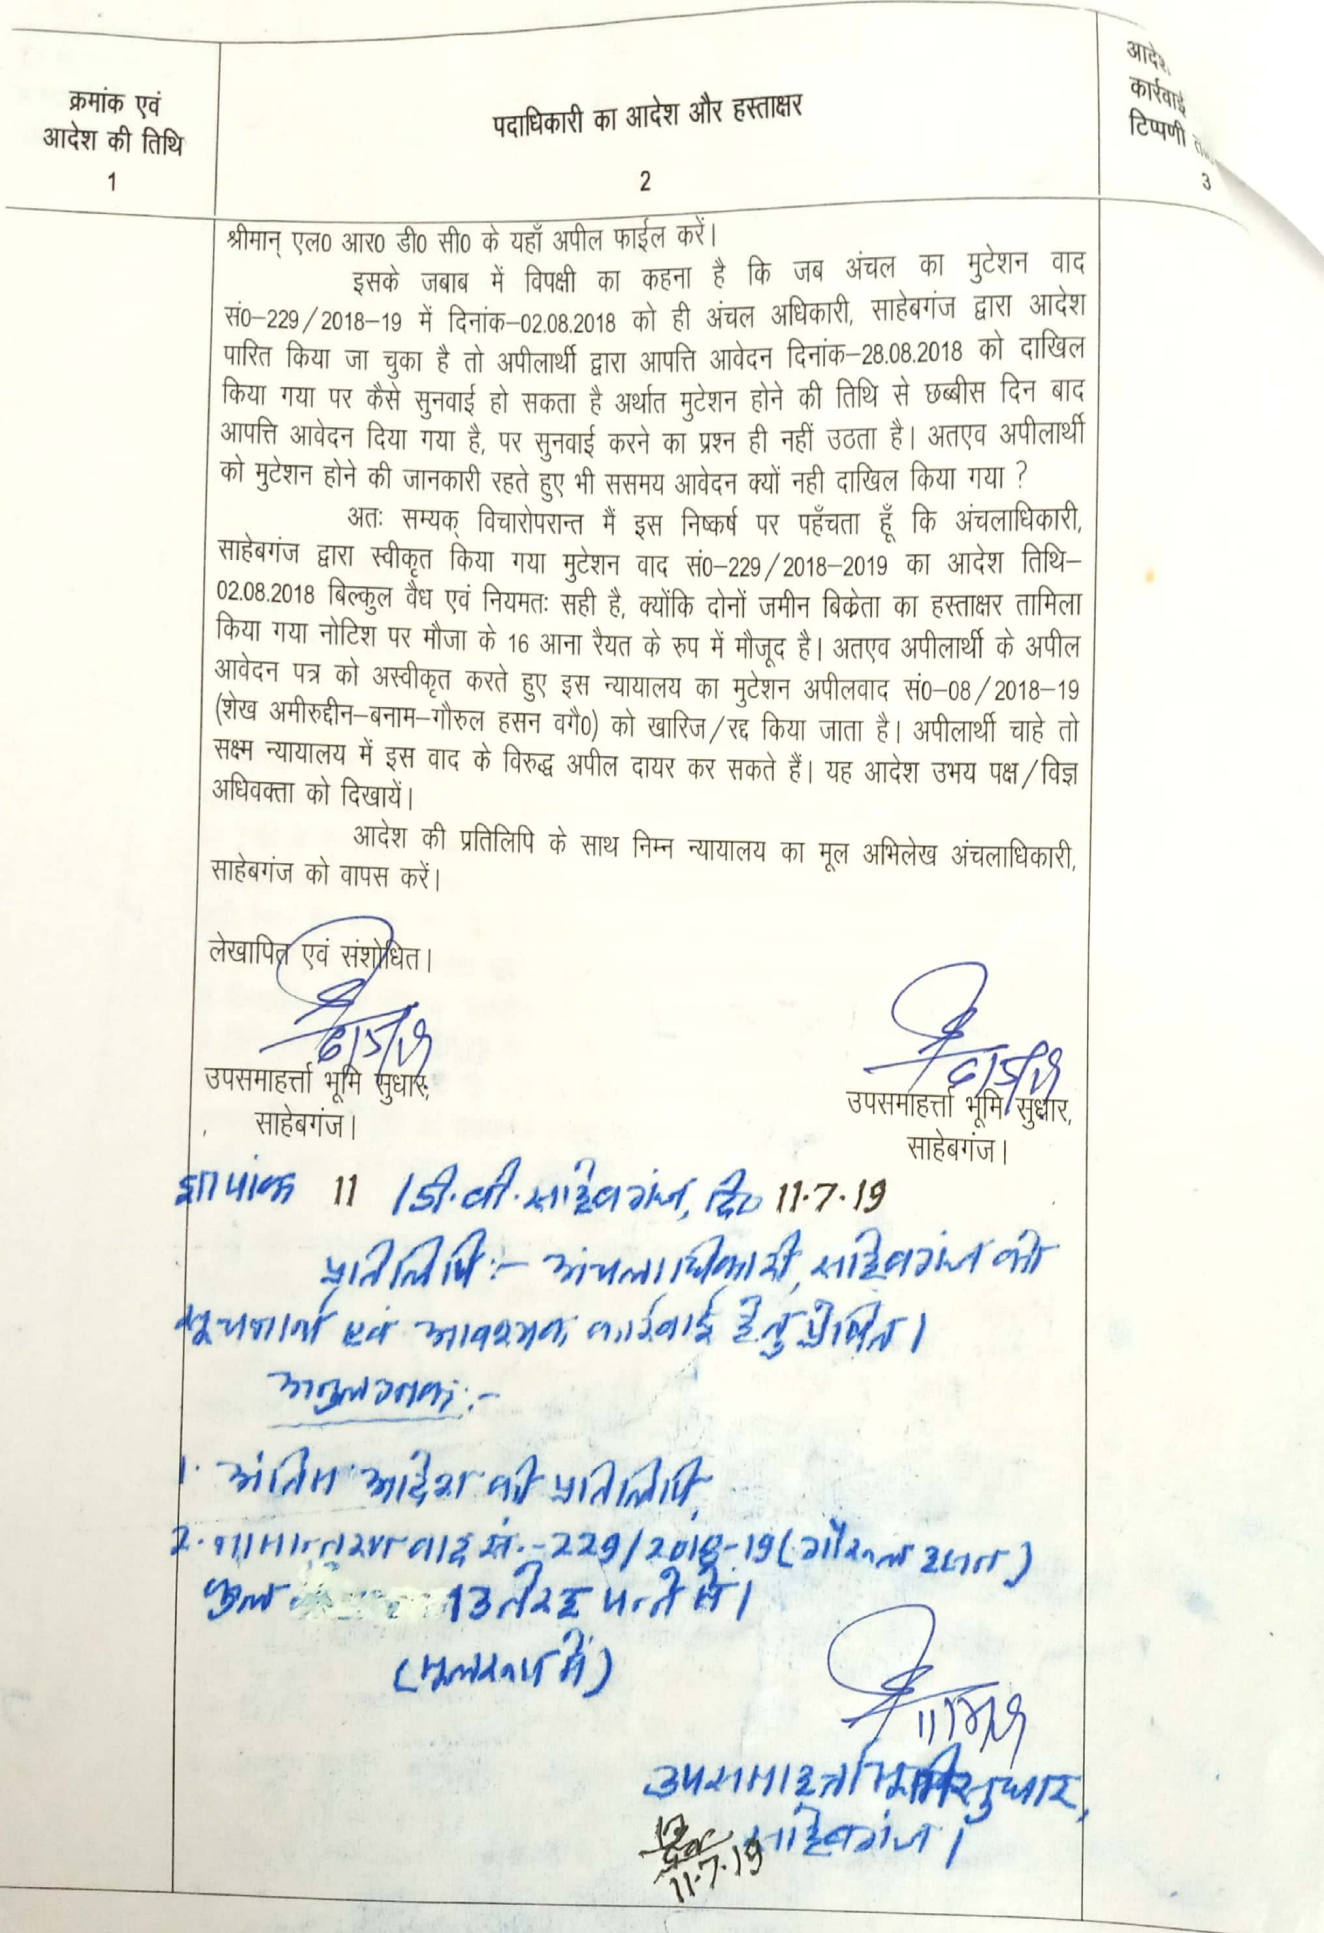 क्रमांक एवं
आदेश की तिथि
1
पदाधिकारी का आदेश और हस्ताक्षर
2
कार्रवाई
टिप्पणी
3
श्रीमान् एल0 आर0 डी0 सी0 के यहाँ अपील फाईल करें।
इसके जबाब में विपक्षी का कहना है कि जब अंचल का मुटेशन वाद
सं0-229/2018-19 में दिनांक-02.08.2018 को ही अंचल अधिकारी, साहेबगंज द्वारा आदेश
पारित किया जा चुका है तो अपीलार्थी द्वारा आपत्ति आवेदन दिनांक-28.08.2018 को दाखिल
किया गया पर कैसे सुनवाई हो सकता है अर्थात मुटेशन होने की तिथि से छब्बीस दिन बाद
आपत्ति आवेदन दिया गया है, पर सुनवाई करने का प्रश्न ही नहीं उठता है। अतएव अपीलार्थी
को मुटेशन होने की जानकारी रहते हुए भी ससमय आवेदन क्यों नही दाखिल किया गया ?
अतः सम्यक् विचारोपरान्त मैं इस निष्कर्ष पर पहुँचता हूँ कि अंचलाधिकारी,
साहेबगंज द्वारा स्वीकृत किया गया मुटेशन वाद सं0-229/2018-2019 का आदेश तिथि-
02.08.2018 बिल्कुल वैध एवं नियमतः सही है, क्योंकि दोनों जमीन बिक्रेता का हस्ताक्षर तामिला
किया गया नोटिश पर मौजा के 16 आना रैयत के रुप में मौजूद है। अतएव अपीलार्थी के अपील
आवेदन पत्र को अस्वीकृत करते हुए इस न्यायालय का मुटेशन अपीलवाद सं0-08/2018-19
(शेख अमीरुद्दीन-बनाम-गौरुल हसन वगै0) को खारिज/रद्द किया जाता है। अपीलार्थी चाहे तो
सक्ष्म न्यायालय में इस वाद के विरुद्ध अपील दायर कर सकते हैं। यह आदेश उभय पक्ष/विज्ञ
अधिवक्ता को दिखायें।
आदेश की प्रतिलिपि के साथ निम्न न्यायालय का मूल अभिलेख अंचलाधिकारी,
साहेबगंज को वापस करें।
लेखापित एवं संशोधित।
उपसमाहर्त्ता भूमि सुधार,
साहेबगंज।
उपसमाहर्त्ता भूमि सुधार,
साहेबगंज।
ज्ञापांक 11 /डी.वी. साहेबगंज, दि0 11.7.19
प्रतिलिपि:- अंचलाधिकारी, साहेबगंज को
सूचनार्थ एवं आवश्यक कार्रवाई हेतु प्रेषित।
अनुलग्नक:-
1. अंतिम आदेश की प्रतिलिपि
2. नामान्तरण वाद सं.-229/2018-19 (गौरुल हसन)
कुल 13 तेरह पन्ने में।
(मूलरूप में)
उपसमाहर्त्ता भूमि सुधार,
साहेबगंज।
11.7.19